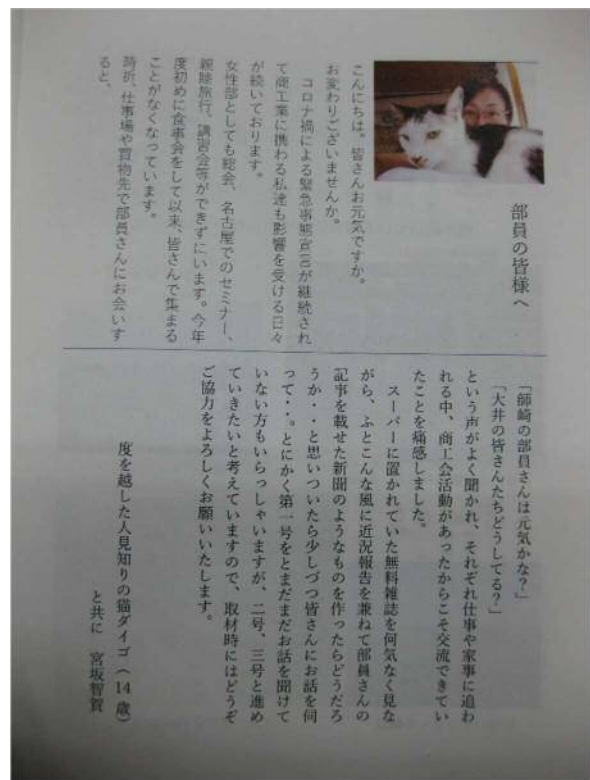 部員の皆様へ
こんにちは。皆さんお元気ですか。
お変わりございませんか。
コロナ禍による緊急事態宣言が継続され
て商工業に携わる私達も影響を受ける日々
が続いております。
女性部としても総会、名古屋でのセミナー、
親睦旅行、講習会等ができずにいます。今年
度初めに食事会をして以来、皆さんで集まる
ことがなくなっています。
時折、仕事場や買物先で部員さんにお会いす
ると、
「師崎の部員さんは元気かな？」
「大井の皆さんたちどうしてる？」
という声がよく聞かれ、それぞれ仕事や家事に追わ
れる中、商工会活動があったからこそ交流できてい
たことを痛感しました。
スーパーに置かれていた無料雑誌を何気なく見な
がら、ふとこんな風に近況報告を兼ねて部員さんの
記事を載せた新聞のようなものを作ったらどうだろ
うか・・と思いついたら少しづつ皆さんにお話を伺
って・・。とにかく第一号をとまだまだお話を聞けて
いない方もいらっしゃいますが、二号、三号と進め
ていきたいと考えていますので、取材時にはどうぞ
ご協力をよろしくお願いいたします。
度を越した人見知りの猫ダイゴ（14歳）
と共に　宮坂智賀